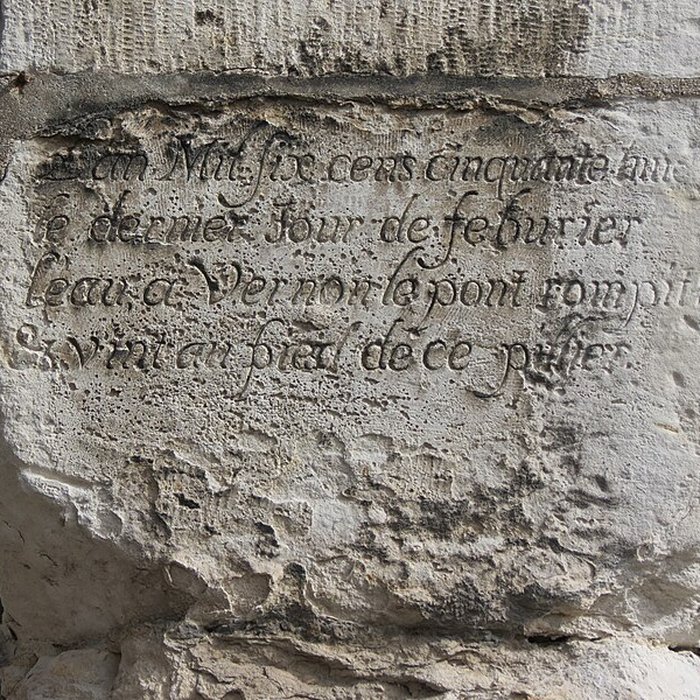 L'an Mil six cens cinquante huic
le dernier Jour de feburier
leau a Vernon le pont rompit
& vint au pied de ce pillier.